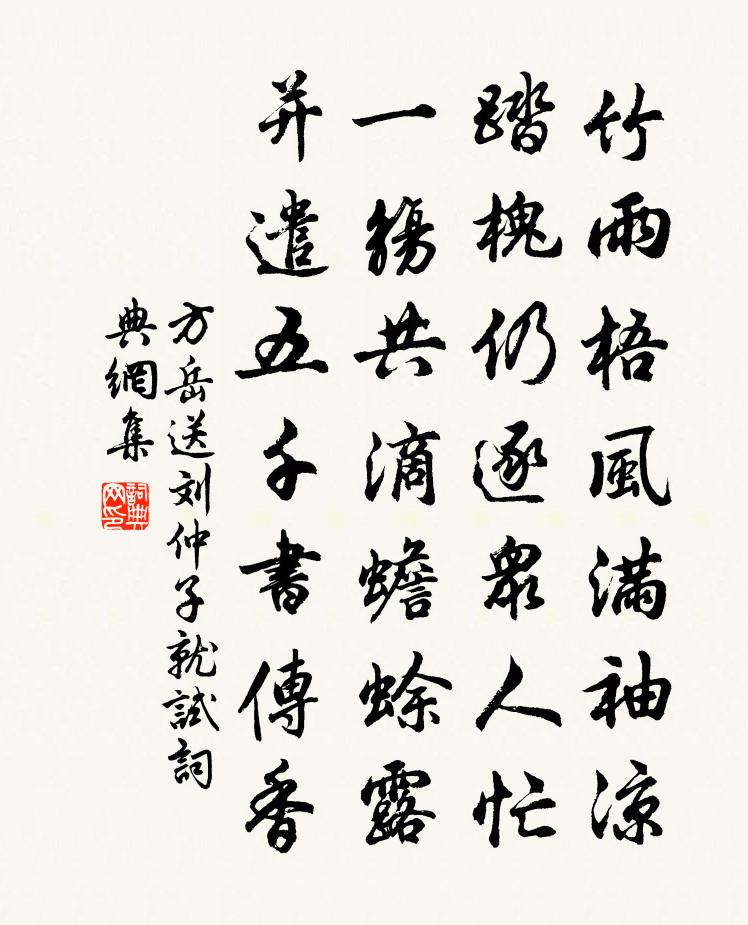 竹雨梧風滿袖涼
踏槐仍逐衆人忙
一觴共滴蟾蜍露
并遣五千書傳香
方岳送刘仲子就試詞
典網集
詞典
网印